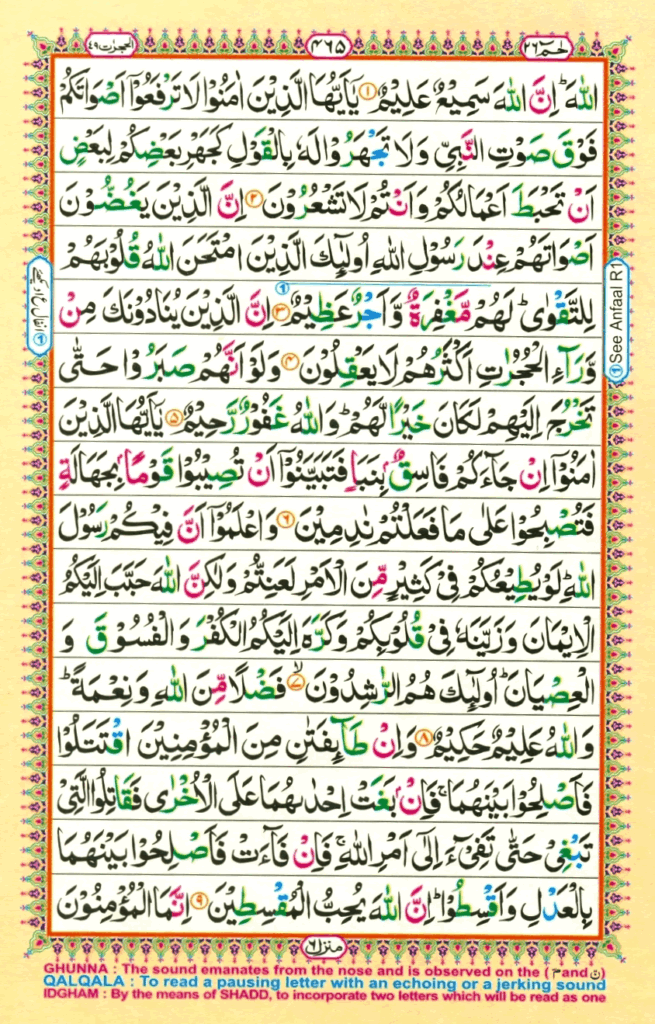 الحجرٰت ٤٩
٤٦٥
حٰمٓ ٢٦
اللّٰهَ ؕ اِنَّ اللّٰهَ سَمِيْعٌ عَلِيْمٌ ۝١ يٰۤاَيُّهَا الَّذِيْنَ اٰمَنُوْا لَا تَرْفَعُوْۤا اَصْوَاتَكُمْ
فَوْقَ صَوْتِ النَّبِيِّ وَلَا تَجْهَرُوْا لَهٗ بِالْقَوْلِ كَجَهْرِ بَعْضِكُمْ لِبَعْضٍ
اَنْ تَحْبَطَ اَعْمَالُكُمْ وَاَنْتُمْ لَا تَشْعُرُوْنَ ۝٢ اِنَّ الَّذِيْنَ يَغُضُّوْنَ
اَصْوَاتَهُمْ عِنْدَ رَسُوْلِ اللّٰهِ اُولٰٓئِكَ الَّذِيْنَ امْتَحَنَ اللّٰهُ قُلُوْبَهُمْ
لِلتَّقْوٰى ؕ لَهُمْ مَّغْفِرَةٌ وَّاَجْرٌ عَظِيْمٌ ۝٣ اِنَّ الَّذِيْنَ يُنَادُوْنَكَ مِنْ
وَّرَآءِ الْحُجُرٰتِ اَكْثَرُهُمْ لَا يَعْقِلُوْنَ ۝٤ وَلَوْ اَنَّهُمْ صَبَرُوْا حَتّٰى
تَخْرُجَ اِلَيْهِمْ لَكَانَ خَيْرًا لَّهُمْ ؕ وَاللّٰهُ غَفُوْرٌ رَّحِيْمٌ ۝٥ يٰۤاَيُّهَا الَّذِيْنَ
اٰمَنُوْۤا اِنْ جَآءَكُمْ فَاسِقٌۢ بِنَبَاٍ فَتَبَيَّنُوْۤا اَنْ تُصِيْبُوْا قَوْمًۢا بِجَهَالَةٍ
فَتُصْبِحُوْا عَلٰى مَا فَعَلْتُمْ نٰدِمِيْنَ ۝٦ وَاعْلَمُوْۤا اَنَّ فِيْكُمْ رَسُوْلَ
اللّٰهِ ؕ لَوْ يُطِيْعُكُمْ فِيْ كَثِيْرٍ مِّنَ الْاَمْرِ لَعَنِتُّمْ وَلٰكِنَّ اللّٰهَ حَبَّبَ اِلَيْكُمُ
الْاِيْمَانَ وَزَيَّنَهٗ فِيْ قُلُوْبِكُمْ وَكَرَّهَ اِلَيْكُمُ الْكُفْرَ وَالْفُسُوْقَ وَ
الْعِصْيَانَ ؕ اُولٰٓئِكَ هُمُ الرّٰشِدُوْنَ ۝٧ۙ فَضْلًا مِّنَ اللّٰهِ وَنِعْمَةً ؕ
وَاللّٰهُ عَلِيْمٌ حَكِيْمٌ ۝٨ وَاِنْ طَآئِفَتٰنِ مِنَ الْمُؤْمِنِيْنَ اقْتَتَلُوْا
فَاَصْلِحُوْا بَيْنَهُمَا ۚ فَاِنْۢ بَغَتْ اِحْدٰىهُمَا عَلَى الْاُخْرٰى فَقَاتِلُوا الَّتِيْ
تَبْغِيْ حَتّٰى تَفِيْٓءَ اِلٰٓى اَمْرِ اللّٰهِ ۚ فَاِنْ فَآءَتْ فَاَصْلِحُوْا بَيْنَهُمَا
بِالْعَدْلِ وَاَقْسِطُوْا ؕ اِنَّ اللّٰهَ يُحِبُّ الْمُقْسِطِيْنَ ۝٩ اِنَّمَا الْمُؤْمِنُوْنَ
① See Anfaal R1
① انفال ع ا دیکھئے
منزل ٦
GHUNNA : The sound emanates from the nose and is observed on the ( م and ن)
QALQALA : To read a pausing letter with an echoing or a jerking sound
IDGHAM : By the means of SHADD, to incorporate two letters which will be read as one